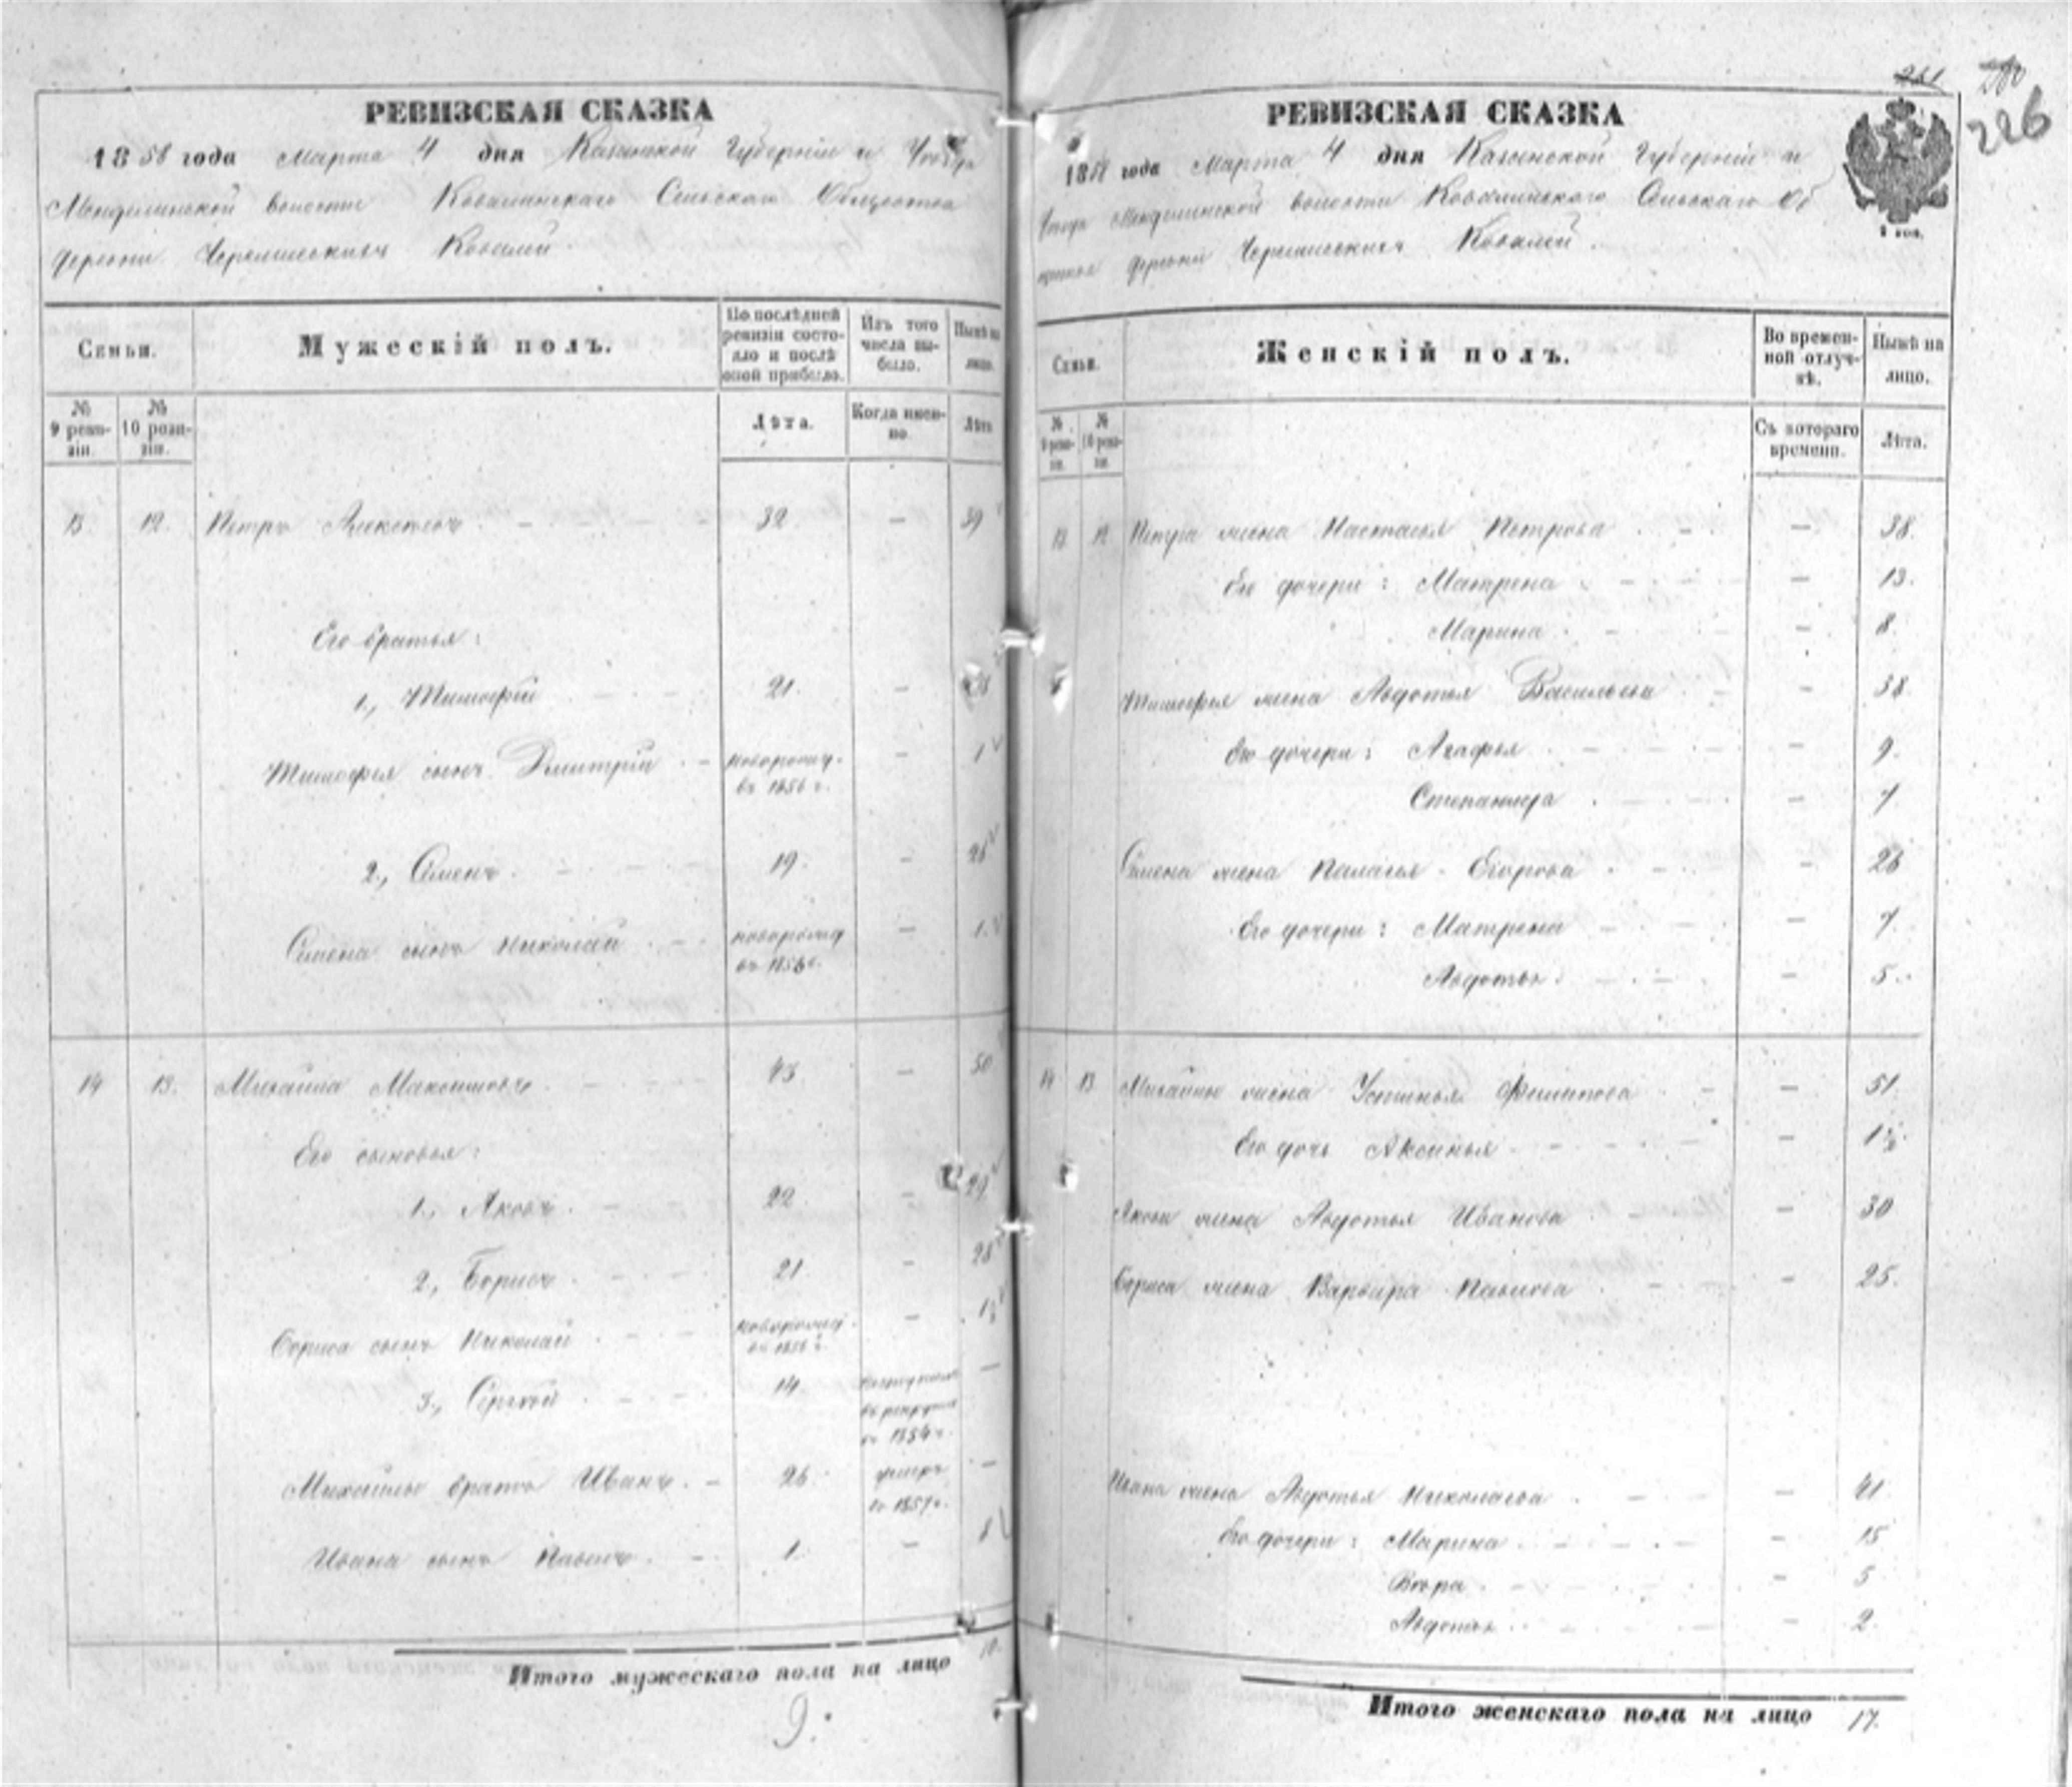 РЕВИЗСКАЯ СКАЗКА
1858 года Марта 4 дня Казанской Губернiи и Уѣзда
волости Ковалинскаго Сельскаго Общества
деревни Черемискихъ Ковалей
Семьи.
Мужескiй полъ.
По послѣдней ревизiи состояло и послѣ оной прибыло.
Изъ того числа выбыло.
Нынѣ на лицо.
№ 9 ревизiи.
№ 10 ревизiи.
Лѣта.
Когда именно
Лѣта
13. 12. Петръ Алексѣевъ 32 — 39
Его братья:
1., Тимофѣй 21. — 28
Тимофея сынъ Дмитрiй новорожд. въ 1856 г. — 1
2., Семенъ 19. — 26
Семена сынъ Николай новорожд въ 1856 г. — 1
14 13. Михайла Максимовъ 43 — 50
Его сыновья:
1., Яковъ 22 — 29
2., Борисъ 21 — 28
Бориса сынъ Николай новорожд. —
3., Сергѣй 14 въ рекруты въ 1854 г. —
Михайлы братъ Иванъ 26 умеръ въ 1857 г. —
Ивана сынъ Павелъ 1 — 8
Итого мужескаго пола на лицо 10.
9.
261
226
РЕВИЗСКАЯ СКАЗКА
1858 года Марта 4 дня Казанской Губернiи и
Уѣзда волости Ковалинскаго Сельскаго Об
щества деревни Черемискихъ Ковалей.
Семьи.
Женскiй полъ.
Во временной отлучкѣ.
Нынѣ на лицо.
№ 9 ревизiи.
№ 10 ревизiи.
Съ котораго времени.
Лѣта.
13 12 Петра жена Настасья Петрова — 38.
Его дочери: Матрена — 13.
Марина — 8.
Тимофея жена Авдотья Васильева — 38
Его дочери: Агафья — 9.
Степанида — 7
Семена жена Палагья Егорова — 26
Его дочери: Матрена — 7.
Авдотья — 5.
14 13 Михайлы жена Устинья Филипова — 51
Его дочь Аксинья —
Якова жена Авдотья Иванова — 30
Бориса жена Варвара Павлова — 25.
Ивана жена Авдотья Николаева — 41
Его дочери: Марина — 15
Вѣра — 5
Авдотья — 2.
Итого женскаго пола на лицо 17.